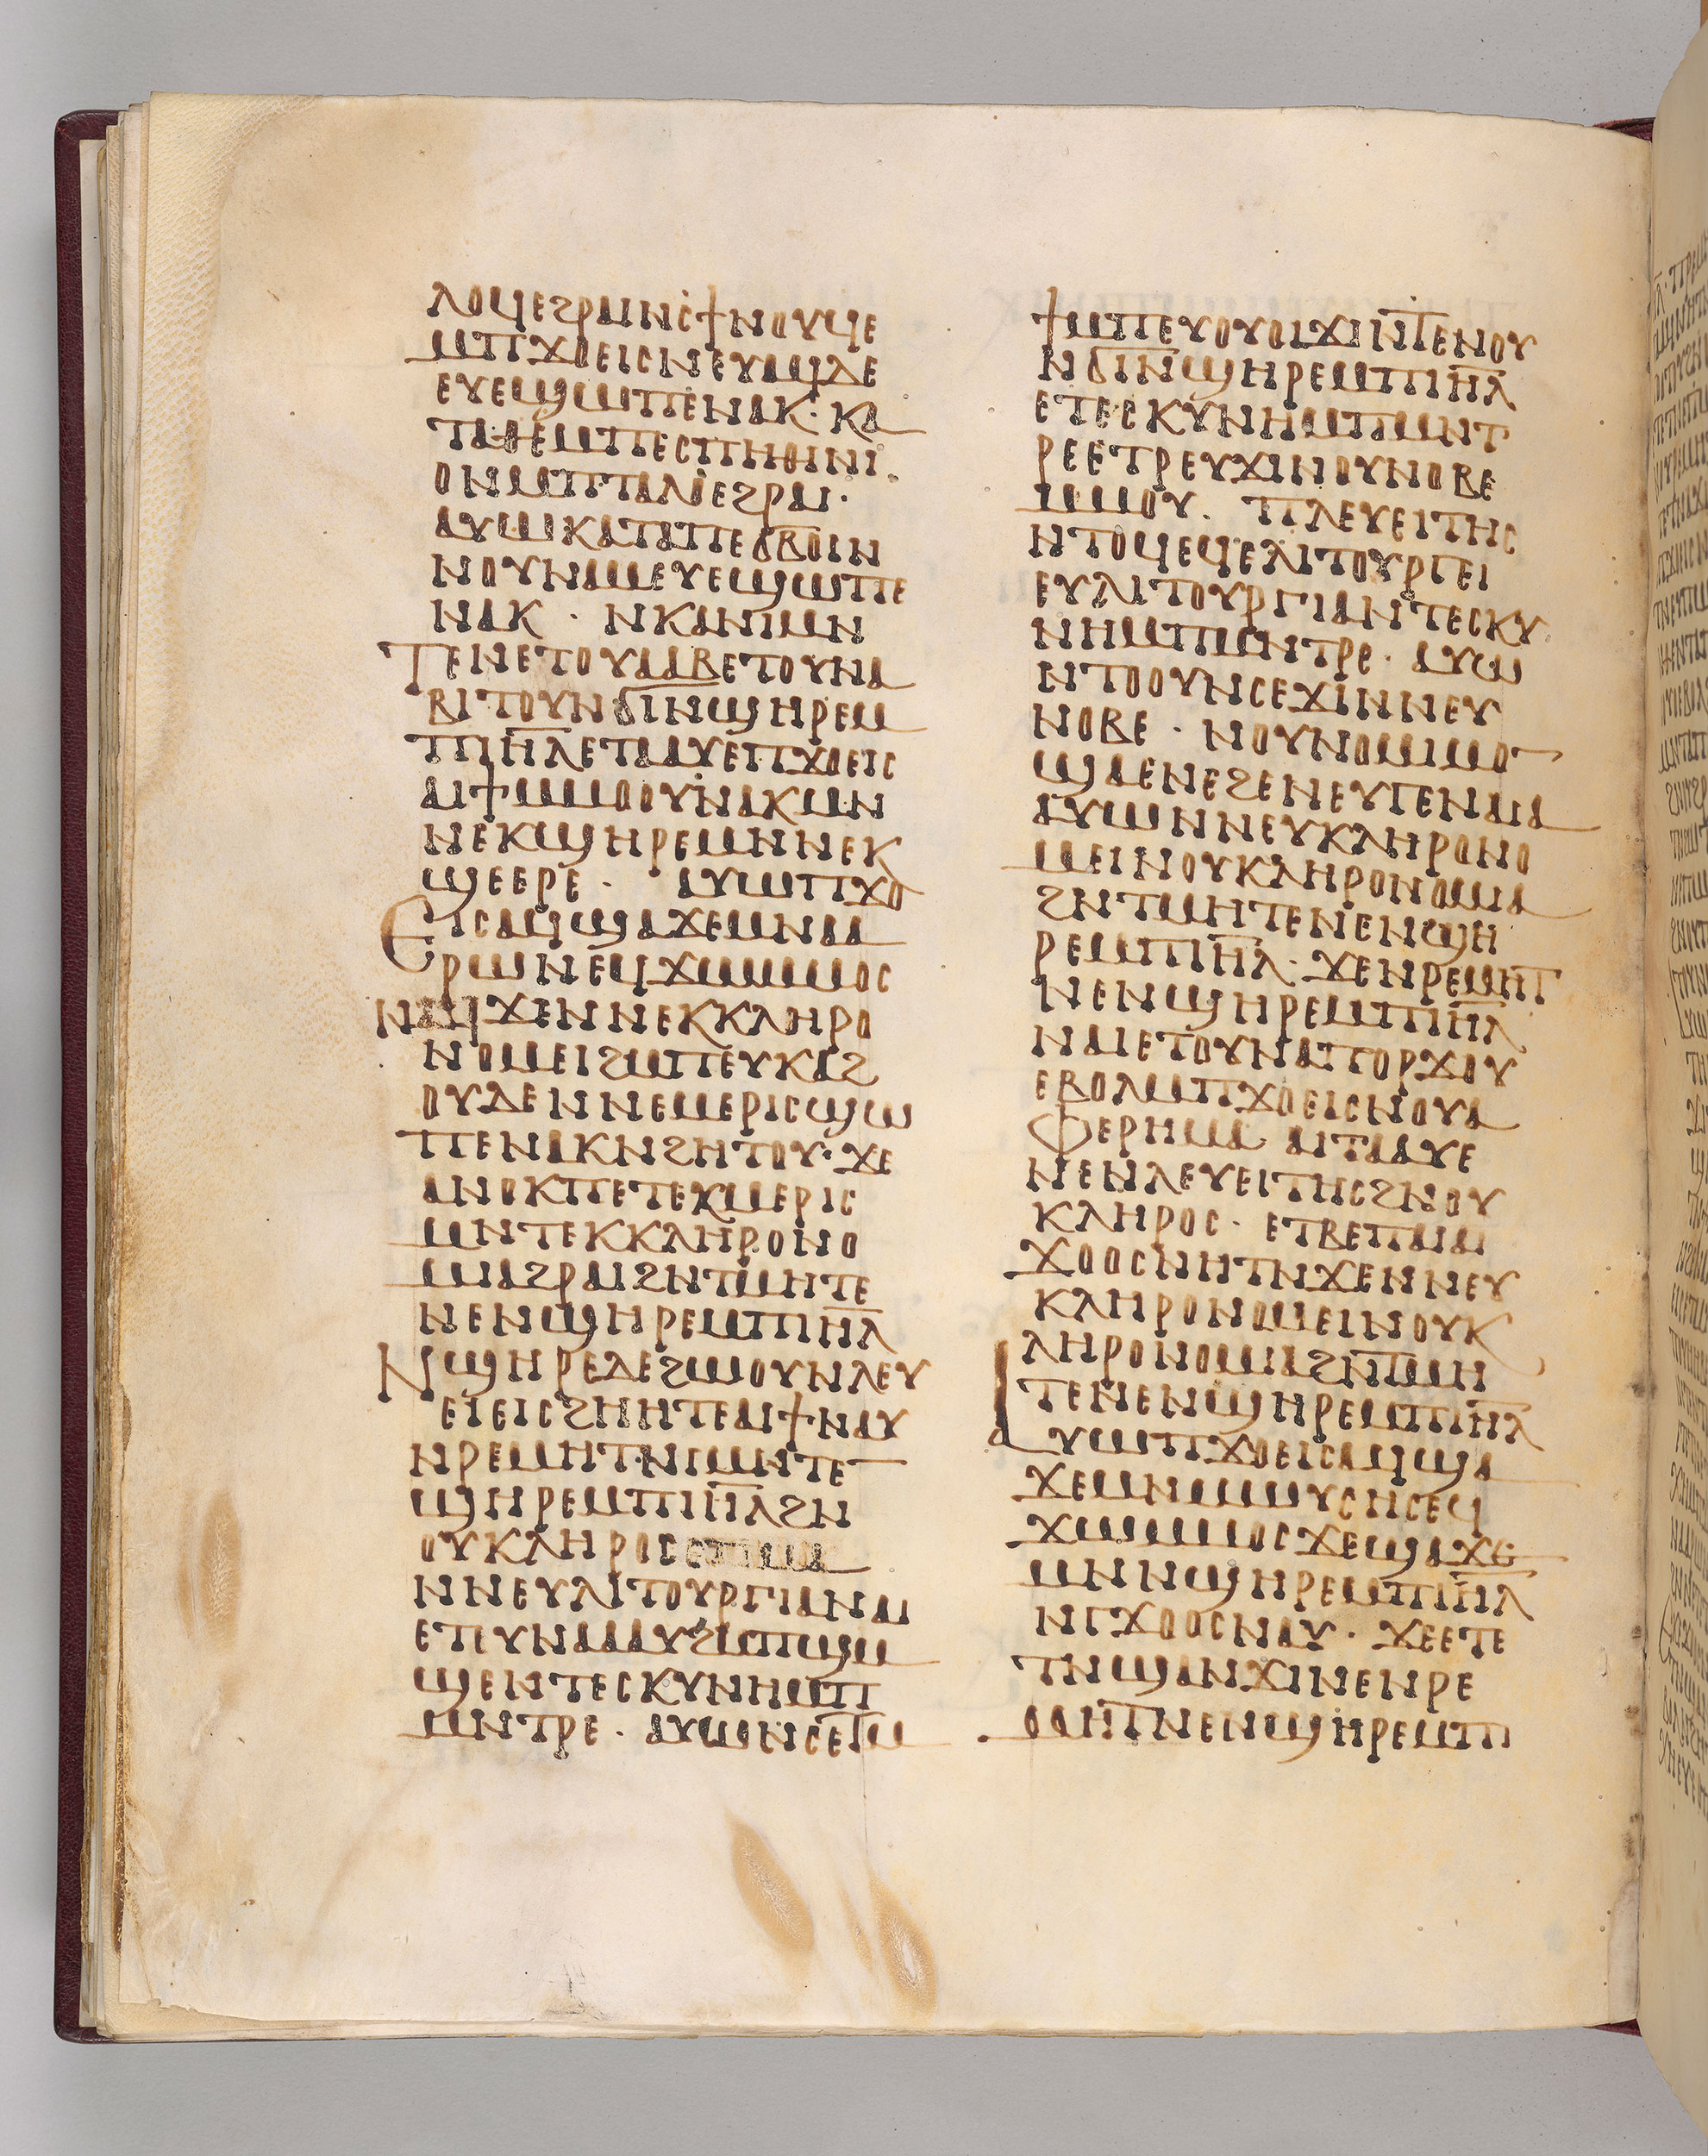 ⲗⲟϥⲉϩⲣⲁⲓⲛⲥϯⲛⲟⲩϥⲉ
ⲙⲡϫⲟⲉⲓⲥⲛⲉⲩⲁϥⲇⲉ
ⲉⲩⲉϣⲱⲡⲉⲛⲁⲕ· ⲕⲁ
ⲧⲁⲑⲉⲙⲡⲉⲥⲧⲏⲑⲓⲛⲓ
ⲟⲛⲙⲡⲧⲁⲗⲟⲉϩⲣⲁⲓ·
ⲁⲩⲱⲕⲁⲧⲁⲡⲉϭⲃⲟⲓⲛ
ⲛⲟⲩⲛⲁⲙⲉⲩⲉϣⲱⲡⲉ
ⲛⲁⲕ · ⲛⲕⲁⲛⲓⲙⲛ
ⲧⲉⲛⲉⲧⲟⲩⲁⲁⲃⲉⲧⲟⲩⲛⲁ
ⲃⲓⲧⲟⲩⲛϭⲓⲛϣⲏⲣⲉⲙ
ⲡⲓⲏ̅ⲗⲉⲧⲁⲁⲩⲉⲡϫⲟⲉⲓⲥ
ⲁⲓϯⲙⲙⲟⲟⲩⲛⲁⲕⲙⲛ
ⲛⲉⲕϣⲏⲣⲉⲙⲛⲛⲉⲕ
ϣⲉⲉⲣⲉ · ⲁⲩⲱⲡϫⲟ
ⲉⲓⲥⲁϥϣⲁϫⲉⲙⲛⲁⲁ
ⲣⲱⲛⲉϥϫⲱⲙⲙⲟⲥ
ⲛⲁϥϫⲉⲛⲛⲉⲕⲕⲗⲏⲣⲟ
ⲛⲟⲙⲉⲓϩⲙⲡⲉⲩⲕⲁϩ
ⲟⲩⲇⲉⲛⲛⲉⲙⲉⲣⲓⲥϣⲱ
ⲡⲉⲛⲁⲕⲛϩⲏⲧⲟⲩ· ϫⲉ
ⲁⲛⲟⲕⲡⲉⲧⲉⲕⲙⲉⲣⲓⲥ
ⲙⲛⲧⲉⲕⲕⲗⲏⲣⲟⲛⲟ
ⲙⲓⲁϩⲣⲁⲓϩⲛⲧⲙⲏⲧⲉ
ⲛⲉⲛϣⲏⲣⲉⲙⲡⲓⲏ̅ⲗ
ⲛϣⲏⲣⲉⲇⲉϩⲱⲟⲩⲛⲗⲉⲩ
ⲉⲓⲉⲓⲥϩⲏⲏⲧⲉⲁⲓϯⲛⲁⲩ
ⲛⲣⲉⲙⲏⲧⲛⲓⲙⲛⲧⲉ
ϣⲏⲣⲉⲙⲡⲓⲏ̅ⲗϩⲛ
ⲟⲩⲕⲗⲏⲣⲟⲥⲉⲡⲙⲁ
ⲛⲛⲉⲩⲗⲓⲧⲟⲩⲣⲅⲓⲁⲛⲁⲓ
ⲉⲧⲟⲩⲛⲁⲁⲁⲩϩⲙⲡϣⲙ
ϣⲉⲛⲧⲉⲥⲕⲩⲛⲏⲙⲡ
ⲙⲛⲧⲣⲉ · ⲁⲩⲱⲛⲥⲉⲧⲙ
ϯⲙⲡⲉⲩⲟⲩⲟⲓϫⲓⲛⲧⲉⲛⲟⲩ
ⲛϭⲓⲛϣⲏⲣⲉⲙⲡⲓⲏ̅ⲗ
ⲉⲧⲉⲥⲕⲩⲛⲏⲙⲡⲙⲛⲧ
ⲣⲉⲉⲧⲣⲉⲩϫⲓⲛⲟⲩⲛⲟⲃⲉ
ⲙⲙⲟⲩ · ⲡⲗⲉⲩⲉⲓⲧⲏⲥ
ⲛⲧⲟϥⲉϥⲉⲗⲓⲧⲟⲩⲣⲅⲉⲓ
ⲉⲩⲗⲓⲧⲟⲩⲣⲅⲓⲁⲛⲧⲉⲥⲕⲩ
ⲛⲏⲙⲡⲙⲛⲧⲣⲉ · ⲁⲩⲱ
ⲛⲧⲟⲟⲩⲛⲥⲉϫⲓⲛⲛⲉⲩ
ⲛⲟⲃⲉ · ⲛⲟⲩⲛⲟⲙⲓⲙⲟⲛ
ϣⲁⲉⲛⲉϩⲉⲛⲉⲩⲅⲉⲛⲁⲓⲁ
ⲁⲩⲱⲛⲛⲉⲩⲕⲗⲏⲣⲟⲛⲟ
ⲙⲉⲓⲛⲟⲩⲕⲗⲏⲣⲟⲛⲟⲙⲓⲁ
ϩⲛⲧⲙⲏⲧⲉⲛⲉⲛϣⲏ
ⲣⲉⲙⲡⲓⲏ̅ⲗ· ϫⲉⲛⲣⲉⲙⲏⲧ
ⲛⲉⲛϣⲏⲣⲉⲙⲡⲓⲏ̅ⲗ
ⲛⲁⲓⲉⲧⲟⲩⲛⲁⲡⲟⲣϫⲟⲩ
ⲉⲃⲟⲗⲙⲡϫⲟⲉⲓⲥⲛⲟⲩⲁ
ⲫⲉⲣⲏⲙⲁ ⲁⲓⲧⲁⲁⲩⲉ
ⲛⲉⲛⲗⲉⲩⲉⲓⲧⲏⲥϩⲛⲟⲩ
ⲕⲗⲏⲣⲟⲥ · ⲉⲧⲃⲉⲡⲁⲓⲁⲓ
ϫⲟⲟⲥⲛⲏⲧⲛϫⲉⲛⲛⲉⲩ
ⲕⲗⲏⲣⲟⲛⲟⲙⲉⲓⲛⲟⲩⲕ
ⲗⲏⲣⲟⲛⲟⲙⲓⲁϩⲛⲧⲙⲏ
ⲧⲉⲛⲉⲛϣⲏⲣⲉⲙⲡⲓⲏ̅ⲗ
ⲁⲩⲱⲡϫⲟⲉⲓⲥⲁϥϣⲁ
ϫⲉⲙⲛⲙⲱⲩⲥⲏⲥⲉϥ
ϫⲱⲙⲙⲟⲥϫⲉϣⲁϫⲉ
ⲙⲛⲛϣⲏⲣⲉⲙⲡⲓⲏ̅ⲗ
ⲛⲅϫⲟⲟⲥⲛⲁⲩ · ϫⲉⲉⲧⲉ
ⲧⲛϣⲁⲛϫⲓⲛⲉⲛⲣⲉ
ⲙⲏⲧⲛⲉⲛϣⲏⲣⲉⲙⲡⲓ